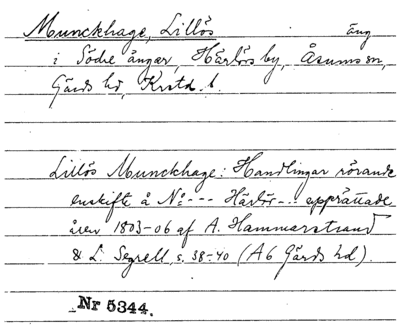 Munckhage, Lillös äng
i Södre ångar, Härlövs by, Åsums sn,
Gärds hd, Krstd. l.
Lillös Munckhage: Handlingar rörande
enskifte å No --- Härlöf --- upprättade
åren 1803-06 af A. Hammarstrand
& L. Segrell, s. 38-40 (A6 Gärds hd).
Nr 5344.